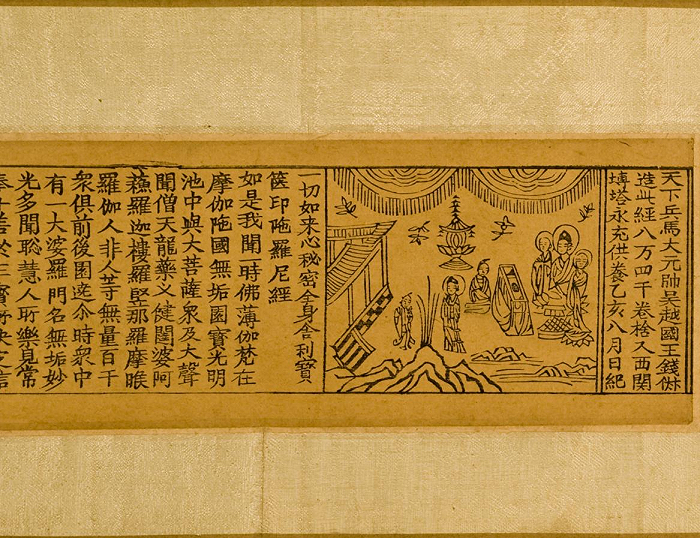 天下兵馬大元帥吳越國王錢俶
造此經八万四千卷捨入西関
塼塔永充供養乙亥八月日紀
一切如来心秘密全身舍利寶
篋印陁羅尼經
如是我聞一時佛薄伽梵在
摩伽陁國無垢園寶光明
池中與大菩薩衆及大聲
聞僧天龍藥叉健闥婆阿
蘇羅迦樓羅緊那羅摩睺
羅伽人非人等無量百千
衆俱前後圍遶尒時衆中
有一大婆羅門名無垢妙
光多聞聡慧人所樂見常
奉十善於三寳所決定信